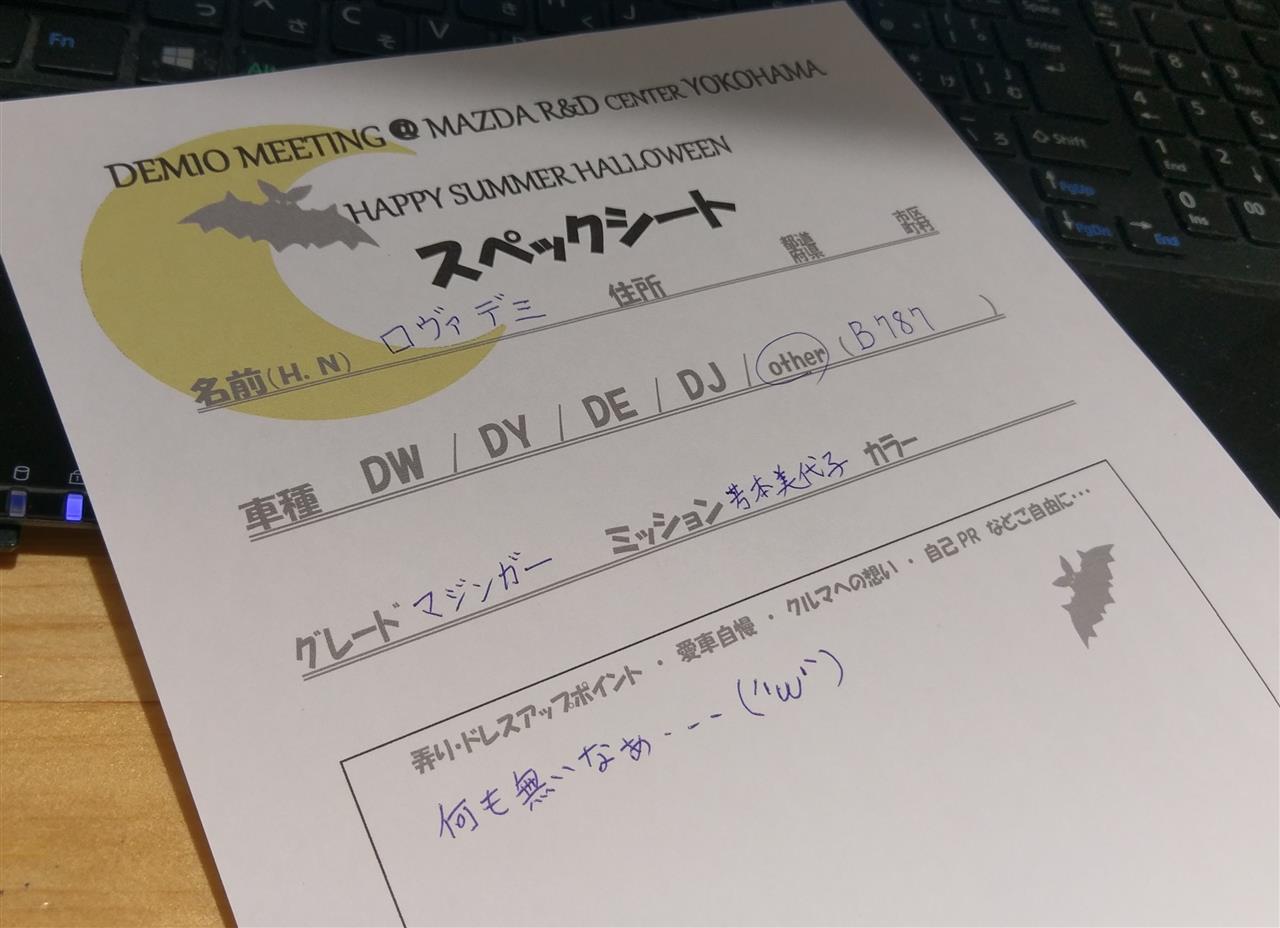 DEMIO MEETING @ MAZDA R&D CENTER YOKOHAMA
HAPPY SUMMER HALLOWEEN
スペックシート
名前(H.N) ロヴァデミ 住所 都道府県 市区町村
車種 DW / DY / DE / DJ / other (B787 )
グレード マジンガー ミッション 芳本美代子 カラー
弄り・ドレスアップポイント ・ 愛車自慢 ・ クルマへの想い ・ 自己PR などご自由に…
何も無いなぁ・---(''ω'')
Fn
Alt
Enter
Shift
PgUp
PgDn
End
7 Home
8
9 PgUp
4
5
6
1 End
2
0 Ins
00